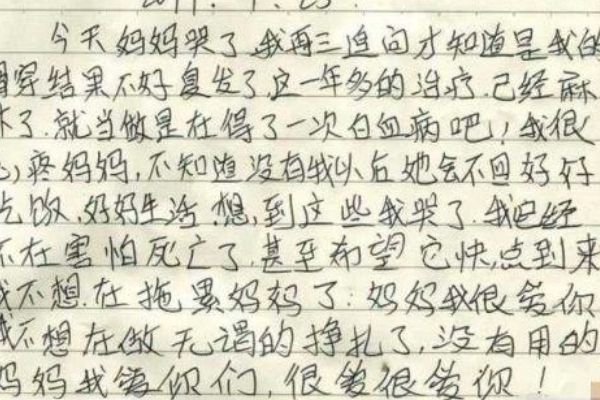 今天妈妈哭了.我再三追问才知道是我的
骨穿结果不好复发了.这一年多的治疗.已经麻
木了.就当做是在得了一次白血病吧!我很
心疼妈妈,不知道没有我以后她会不回好好
吃饭.好好生活.想到这些我哭了.我已经
不在害怕死亡了.甚至希望它快点到来
我不想在拖累妈妈了.妈妈我很爱你
我不想在做无谓的挣扎了.没有用的
妈妈我爱你们,很爱很爱你!